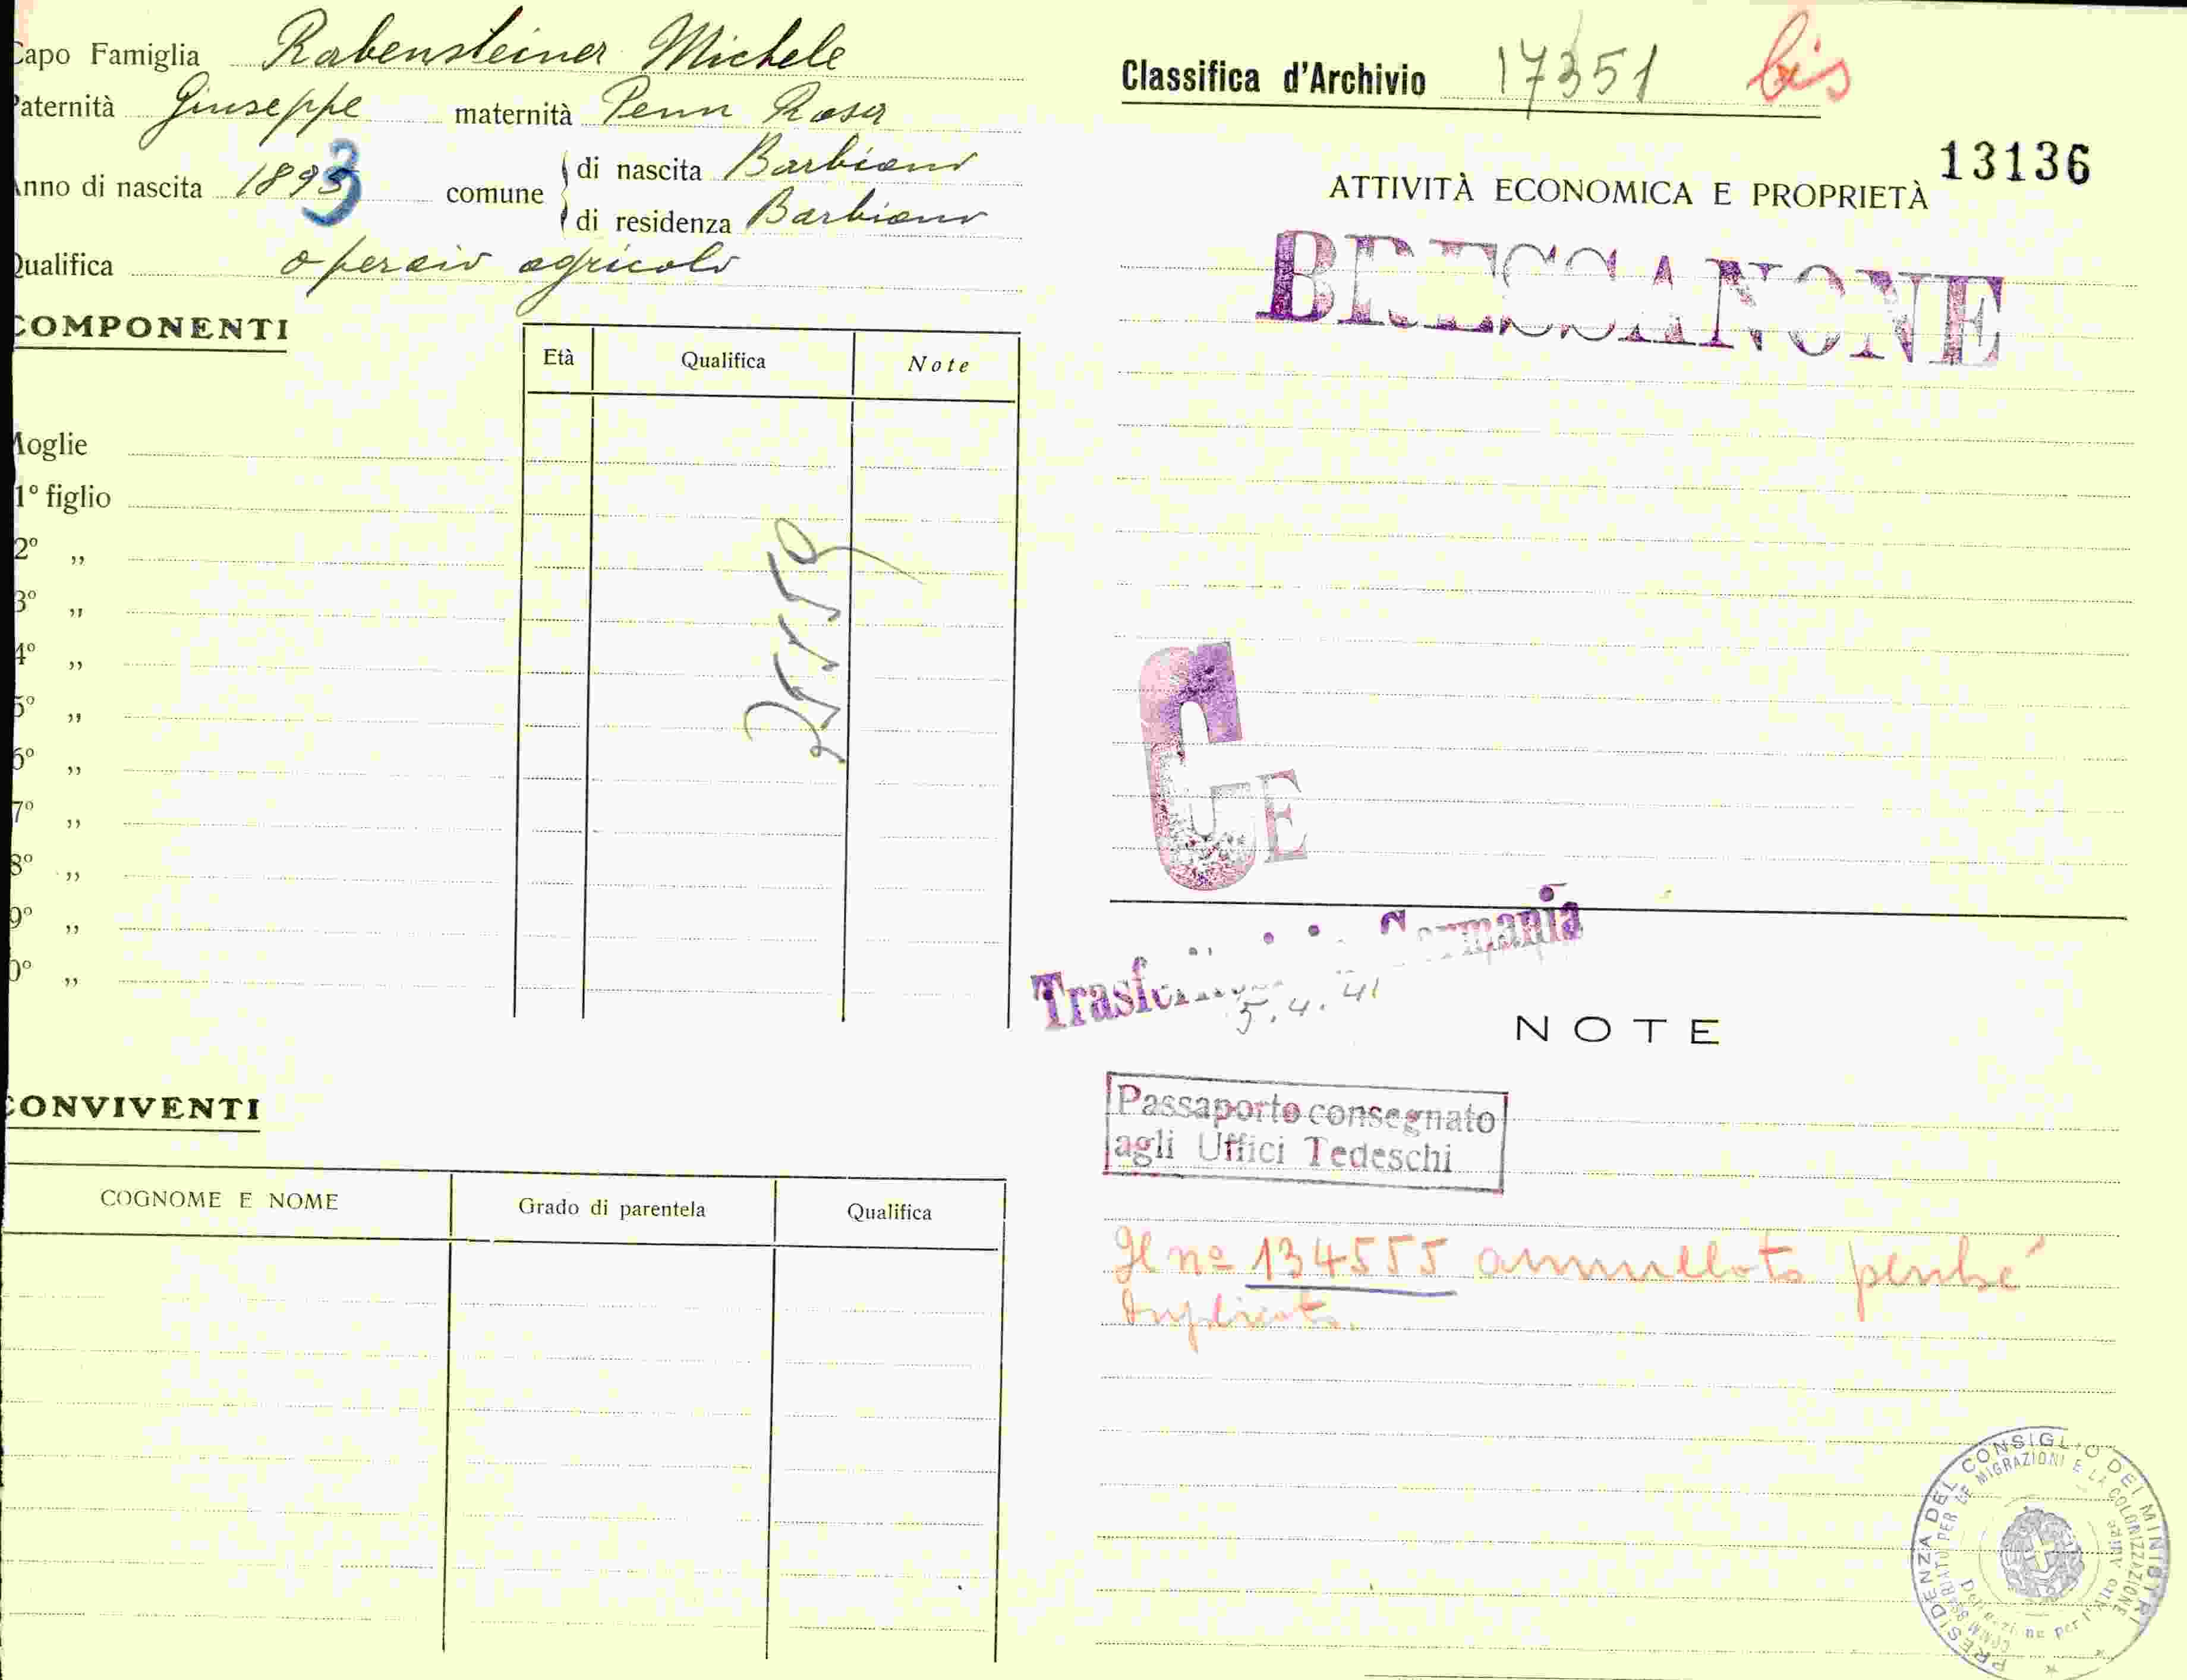 Capo Famiglia Rabensteiner Michele
Paternità Giuseppe maternità Penn Rosa
Anno di nascita 1893 comune di nascita Barbiano
di residenza Barbiano
Qualifica operaio agricolo
COMPONENTI
Età Qualifica Note
Moglie
1º figlio
2º „
3º „
4º „
5º „
6º „
7º „
8º „
9º „
0º „
CONVIVENTI
COGNOME E NOME Grado di parentela Qualifica
Classifica d'Archivio 17351 bis
13136
ATTIVITÀ ECONOMICA E PROPRIETÀ
BRESSANONE
G
E
Germania
5.4.41
NOTE
Passaporto consegnato
agli Uffici Tedeschi
Il nº 134555 annullato perché
duplicato.
PRESIDENZA DEL CONSIGLIO DEI MINISTRI
COMMISSARIATO PER LE MIGRAZIONI E LA COLONIZZAZIONE
Delegazione per l'Alto Adige